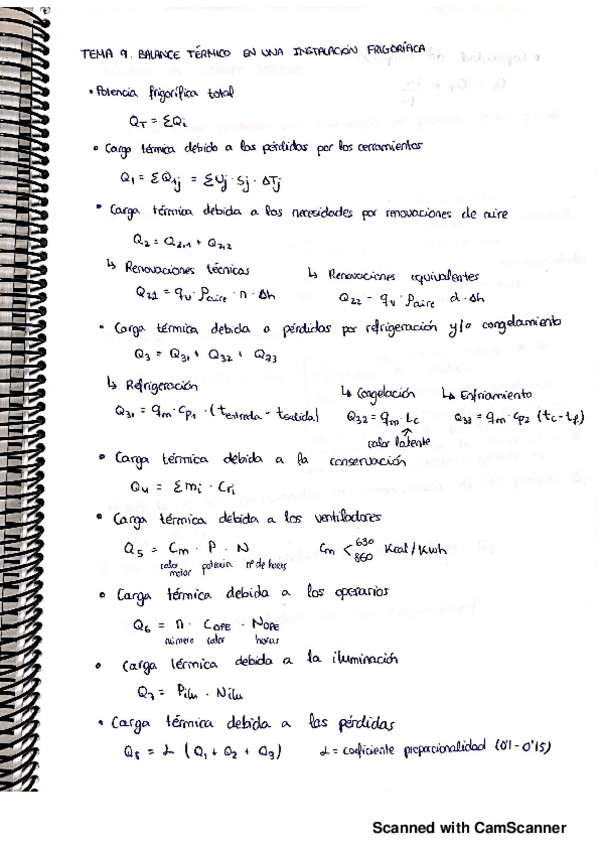 TEMA 9. BALANCE TÉRMICO EN UNA INSTALACIÓN FRIGORÍFICA
• Potencia frigorífica total
Q_T = ΣQi
• Carga térmica debido a las pérdidas por los cerramientos
Q1 = ΣQ1j = ΣUj · Sj · ΔTj
• Carga térmica debida a las necesidades por renovaciones de aire
Q2 = Q2,1 + Q2,2
↳ Renovaciones técnicas ↳ Renovaciones equivalentes
Q21 = qv · ρaire · n · Δh Q22 = qv · ρaire d · Δh
• Carga térmica debida a pérdidas por refrigeración y/o congelamiento
Q3 = Q31 + Q32 + Q33
↳ Refrigeración ↳ Congelación ↳ Enfriamiento
Q31 = qm · Cp1 · (tentrada - tsalida) Q32 = qm · Lc Q33 = qm · Cp2 (tc - tf)
calor latente
• Carga térmica debida a la conservación
Q4 = Σmi · Cri
• Carga térmica debida a los ventiladores
Q5 = Cm · P · N Cm < 630 860 Kcal/Kwh
calor motor potencia nº de horas
• Carga térmica debida a los operarios
Q6 = n · COPE · NOPE
número calor horas
• Carga térmica debida a la iluminación
Q7 = Pilu · Nilu
• Carga térmica debida a las pérdidas
Q8 = α (Q1 + Q2 + Q3) α = coeficiente proporcionalidad (0'1 - 0'15)
Scanned with CamScanner